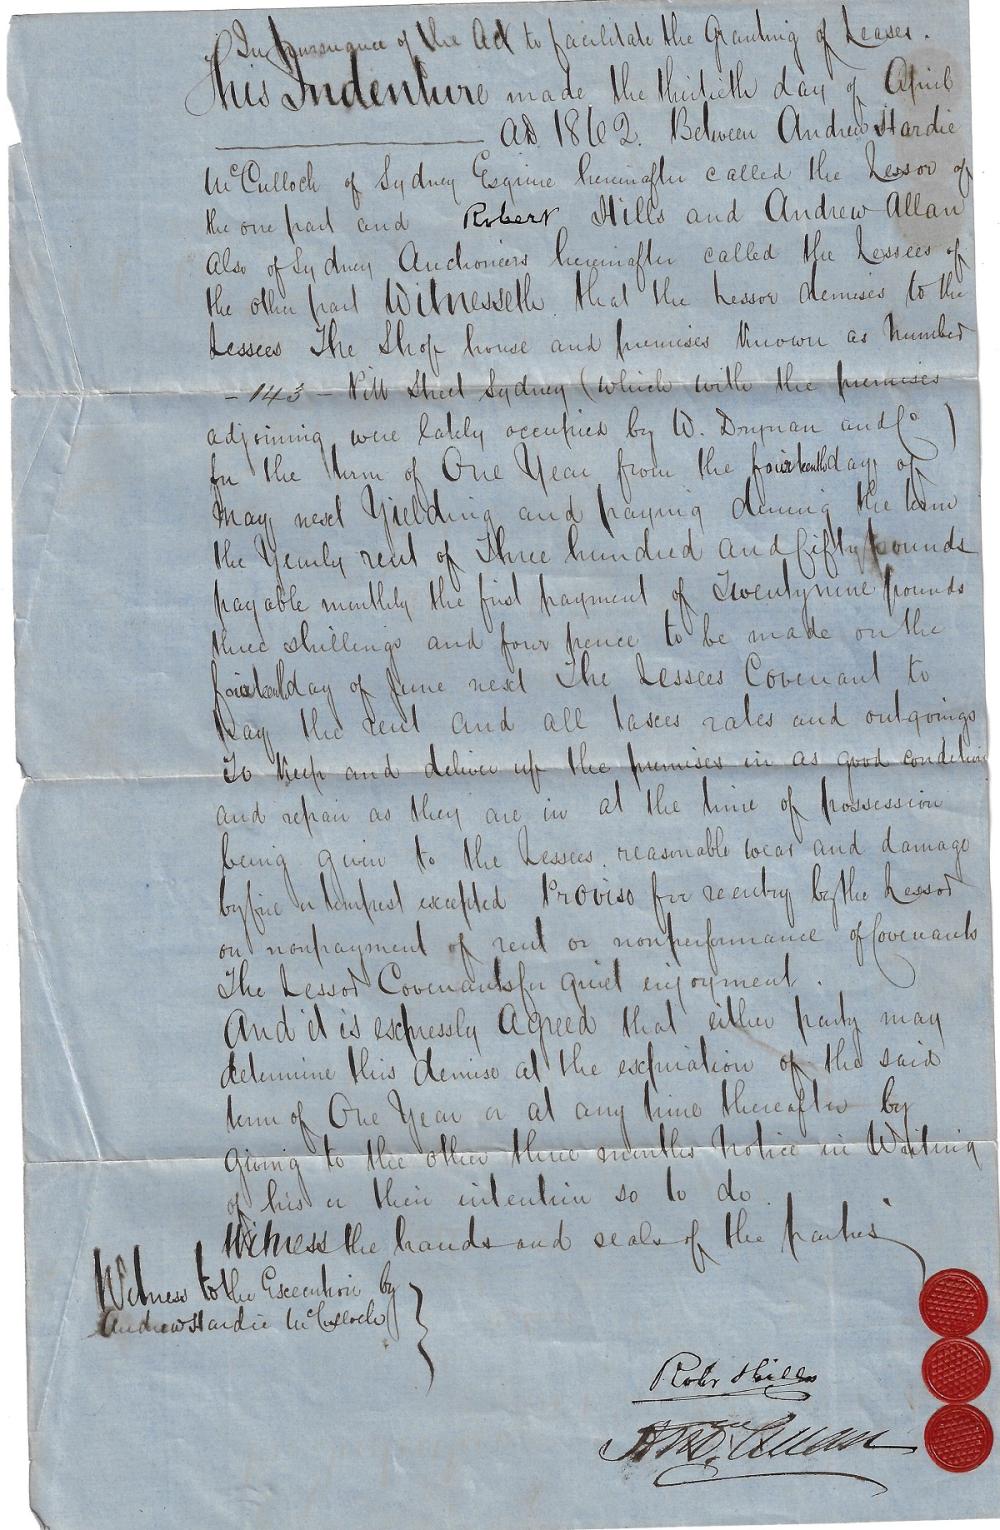 In pursuance of the Act to facilitate the Granting of Leases.
This Indenture made the thirtieth day of April
AD 1862. Between Andrew Hardie
McCulloch of Sydney Esquire hereinafter called the Lessor of
the one part and Robert Hills and Andrew Allan
also of Sydney Auctioneers hereinafter called the Lessees of
the other part Witnesseth that the Lessor demises to the
Lessees The Shop house and premises known as Number
- 143 - Pitt Street Sydney (which with the premises
adjoining were lately occupied by W. Drynan and Co)
for the term of One Year from the fourteenth day of
May next Yielding and paying during the term
the Yearly rent of Three hundred and fifty pounds
payable monthly the first payment of Twentynine pounds
three shillings and four pence to be made on the
fourteenth day of June next The Lessees Covenant to
pay the rent and all taxes rates and outgoings
To Keep and deliver up the premises in as good condition
and repair as they are in at the time of possession
being given to the Lessees. reasonable wear and damage
by fire or tempest excepted Proviso for reentry by the Lessor
on nonpayment of rent or nonperformance of Covenants
The Lessor Covenants for quiet enjoyment.
And it is expressly Agreed that either party may
determine this demise at the expiration of the said
term of One Year or at any time thereafter by
giving to the other three months notice in Writing
of his or their intention so to do.
Witness the hands and seals of the parties
Witness to the Execution by
Andrew Hardie McCulloch
Robt Hills
Allan